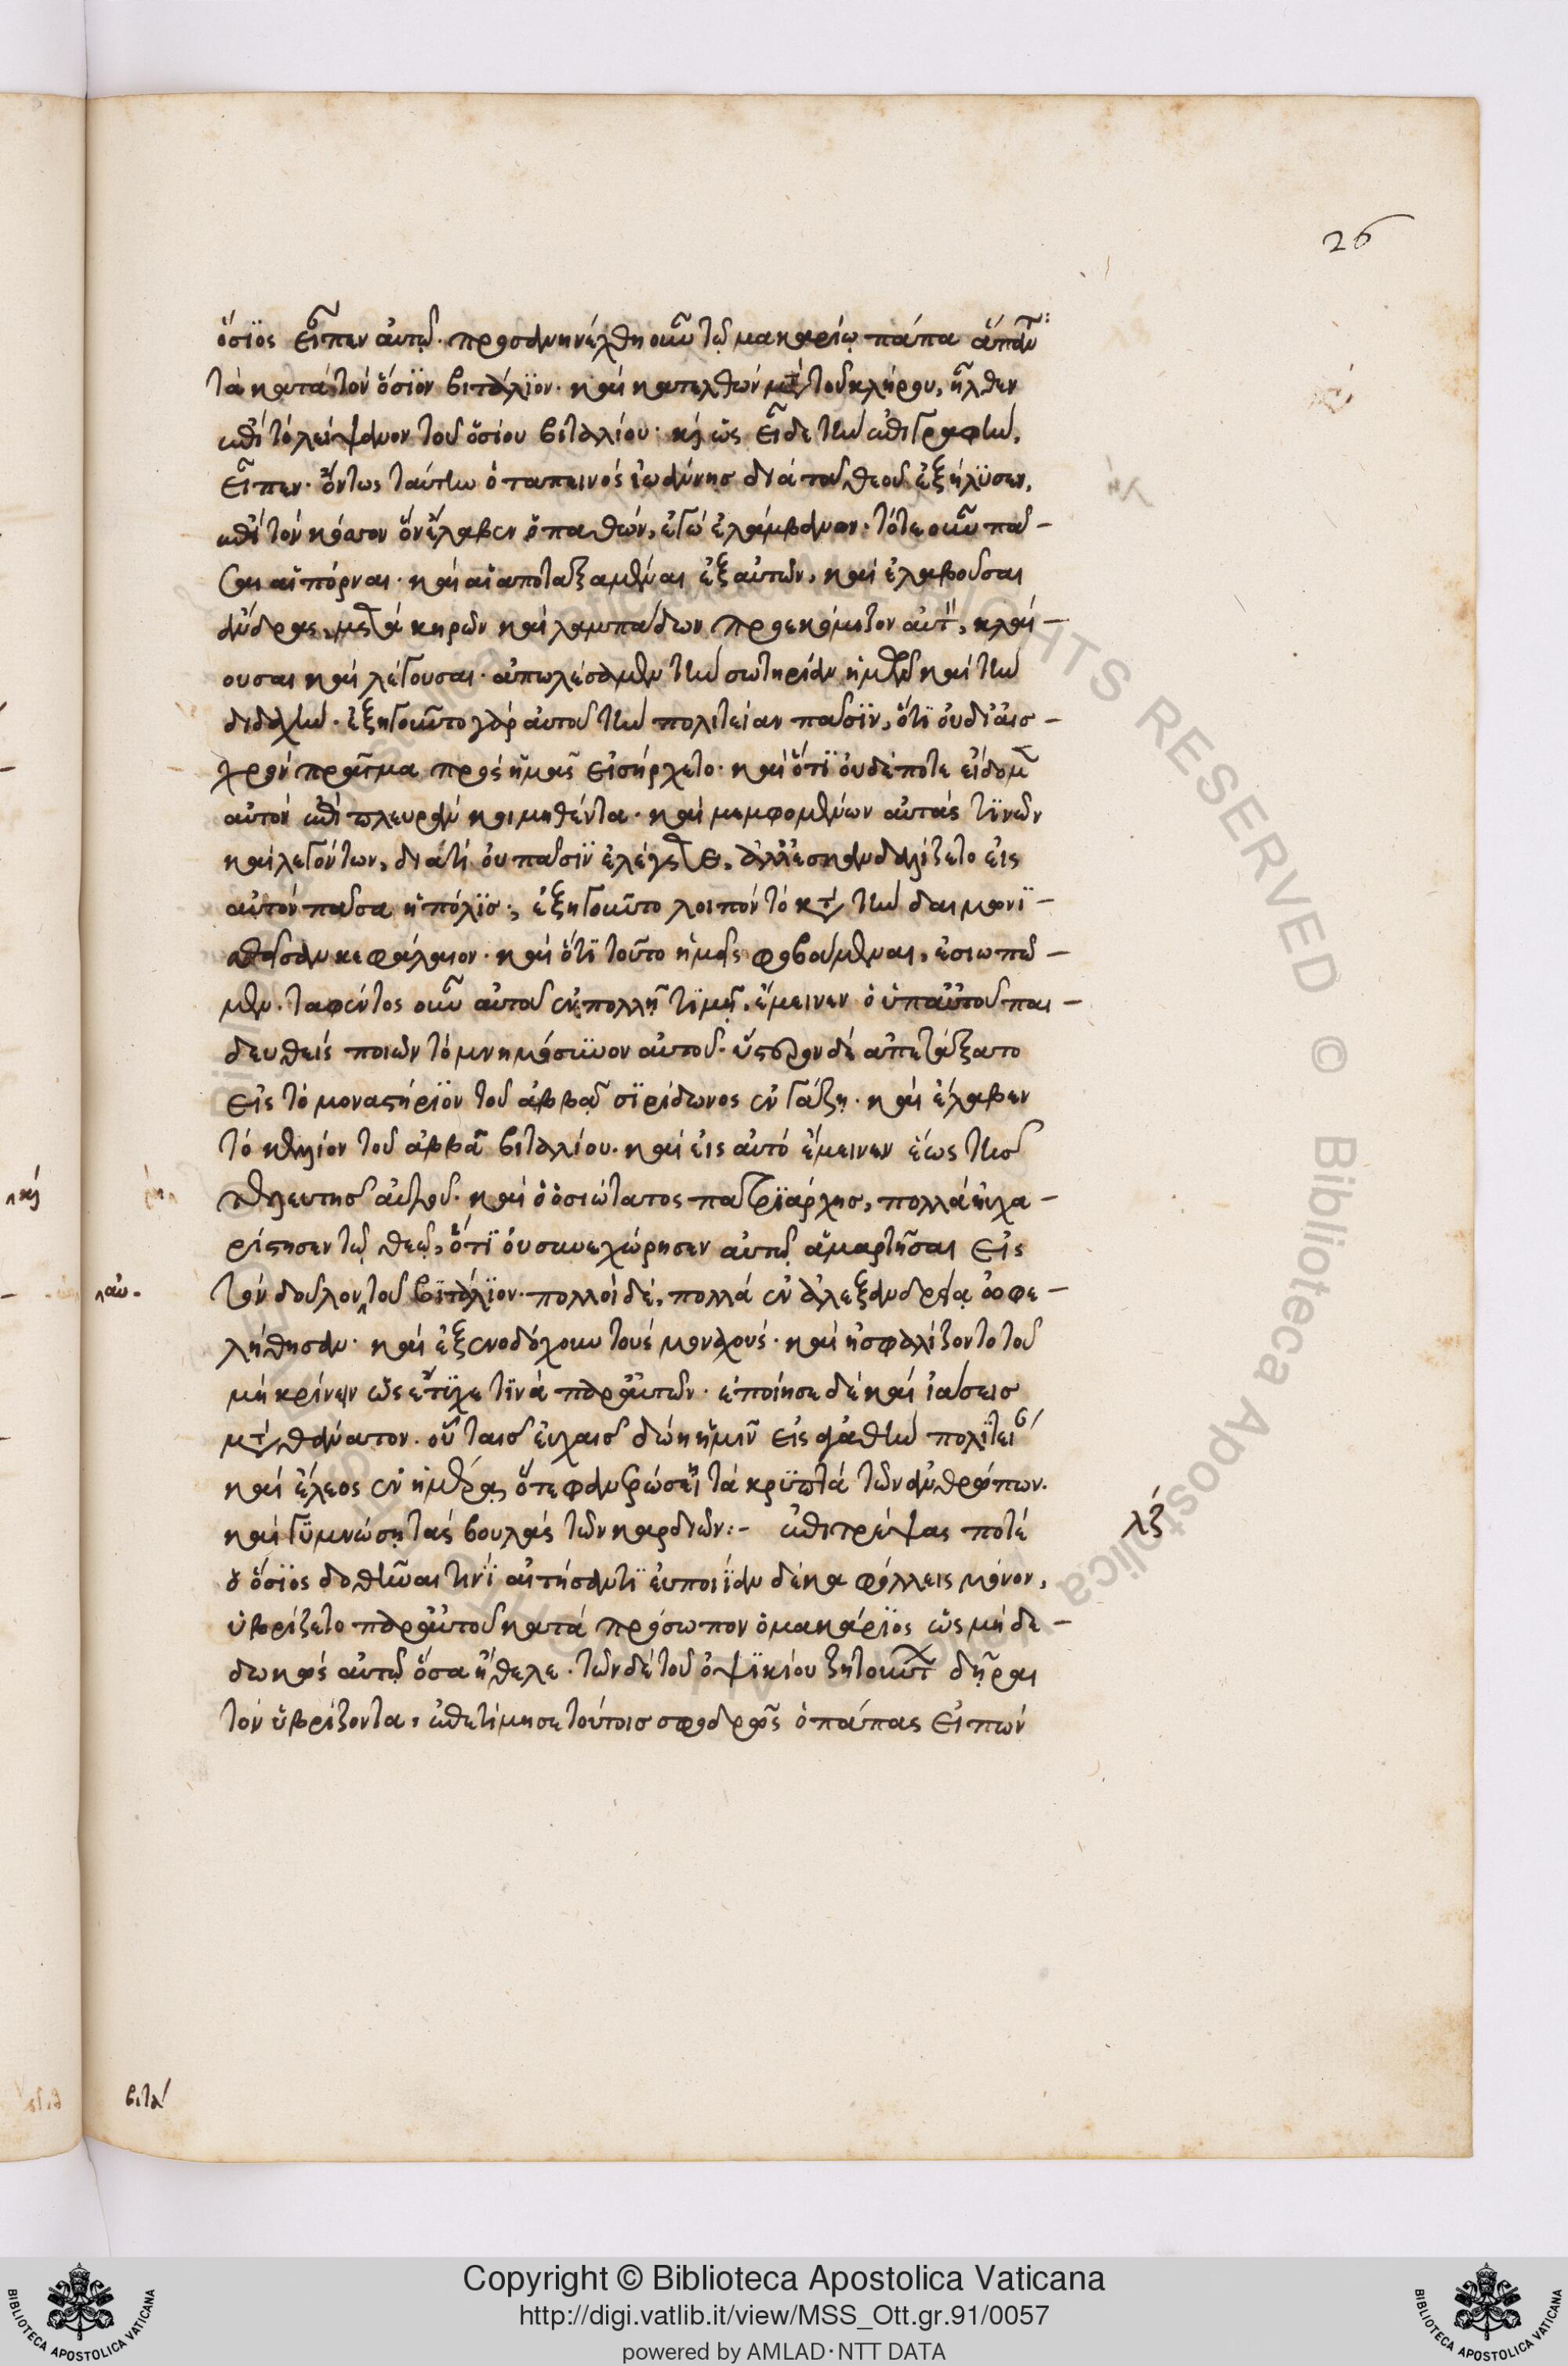 26
ὅσϊος εἶπεν αὐτῷ· προσανηνέχθη οὖν τῷ μακαρίῳ πάπα ἅπαν
τὰ κατὰ τὸν ὅσϊον βιτάλϊον· καὶ κατελθὼν μετὰ τοῦ κλήρου, ἦλθεν
ἐπὶ τὸ λείψανον τοῦ ὁσίου βιταλίου· καὶ ὡς εἶδε τὴν ἐπιγραφὴν,
εἶπεν· ὄντως ταύτην ὁ ταπεινὸς ἰωάννησ διὰ τοῦ θεοῦ ἐξήλϋσεν,
ἐπὶ τὸν κόσσον ὃν ἔλαβεν ὁ παθὼν, ἐγὼ ἐλάμβανον· τότε οὖν πᾶ–
σαι αἱ πόρναι· καὶ αἱ αποταξαμέναι ἐξ αὐτῶν, καὶ ἐλαβοῦσαι
ἄνδρας, μετὰ κηρῶν καὶ λαμπάδων προεκόμιτον αὐτ, κλαί–
ουσαι καὶ λέγουσαι· ἀπωλέσαμεν τὴν σωτηρίαν ἡμῶν καὶ τὴν
διδαχήν· ἐξηγοῦντο γὰρ αὐτοῦ τὴν πολιτείαν πᾶσϊν, ὅτϊ οὐ δϊ αἰσ–
χρὸν πρᾶγμα πρὸς ἡμᾶς εἰσήρχετο· καὶ ὅτϊ οὐδέποτε εἴδομ
αὐτὸν ἐπὶ πλευρὰν κοιμηθέντα· καὶ μεμφομένων αὐτὰς τϊνῶν
καὶ λεγόντων, διατί οὐ πᾶσϊν ἐλέγετε, ἀλλ' ἐσκανδαλίζετο εἰς
αὐτὸν πᾶσα ἡ πόλϊσ·, ἐξηγοῦντο λοιπὸν τὸ κατὰ τὴν δαιμονϊ–
σθεῖσαν κεφάλαιον· καὶ ὅτϊ τοῦτο ἡμεῖς φοβούμεναι, ἐσιωπῶ–
μεν. ταφέντος οὖν αὐτοῦ ἐν πολλῇ τϊμῇ, ἔμεινεν ὁ ὑπ' αὐτοῦ παι–
δευθεὶς ποιῶν τὸ μνημόσϋνον αὐτοῦ· ὕστερον δὲ ἀπετάξατο
εἰς τὸ μοναστήρϊον τοῦ ἀββᾶ σϊρίδωνος ἐν γάζῃ· καὶ ἔλαβεν
τὸ κελλίον τοῦ ἀββᾶ βιταλίου· καὶ εἰς αὐτὸ ἔμεινεν ἕως τῆσ
τελευτῆσ αὐτοῦ· καὶ ὁ ὁσιώτατος πατρϊάρχησ, πολλὰ εὐχα–
ρίστησεν τῷ θεῷ, ὅτϊ οὐ συνεχώρησεν αὐτῷ ἁμαρτῆσαι εἰς
τὸν δοῦλον τοῦ βϊτάλϊον· πολλοὶ δὲ, πολλὰ ἐν ἀλεξανδρείᾳ ὠφε–
λήθησαν· καὶ ἐξενοδόχουν τοὺς μοναχοὺς· καὶ ἠσφαλίζοντο τοῦ
μὴ κρίνειν ὡς ἔτϋχε τϊνὰ παρ' αὐτῶν· ἐποίησε δὲ καὶ ἰάσεισ
μετὰ θάνατον. οὗ ταισ εὐχαισ δώη ἡμῖν εἰς ἀγαθὴν πολϊτεί
καὶ ἔλεος ἐν ἡμέρᾳ, ὅτε φανερώσεϊ τὰ κρϋπτὰ τῶν ἀνθρώπων.
καὶ γϋμνώσῃ τὰς βουλὰς τῶν καρδιῶν:– ἐπιτρέψας ποτὲ
ὁ ὅσϊος δοθῆναι τινϊ αἰτήσαντϊ εὐποιϊαν δέκα φόλλεις μόνον,
ὑβρίζετο παρ' αὐτοῦ κατὰ πρόσωπον ὁ μακάρϊος ὡς μὴ δε–
δωκὼς αὐτῷ ὅσα ἤθελε· τῶν δὲ τοῦ ὀψϊκίου ζητούντ δῆραι
τὸν ὑβρίζοντα, ἐπετίμησε τούτοισ σφοδρῶς ὁ πάπας εἰπών
καὶ
αὐ·
λξ
βιτα
Copyright © Biblioteca Apostolica Vaticana
http://digi.vatlib.it/view/MSS_Ott.gr.91/0057
powered by AMLAD·NTT DATA